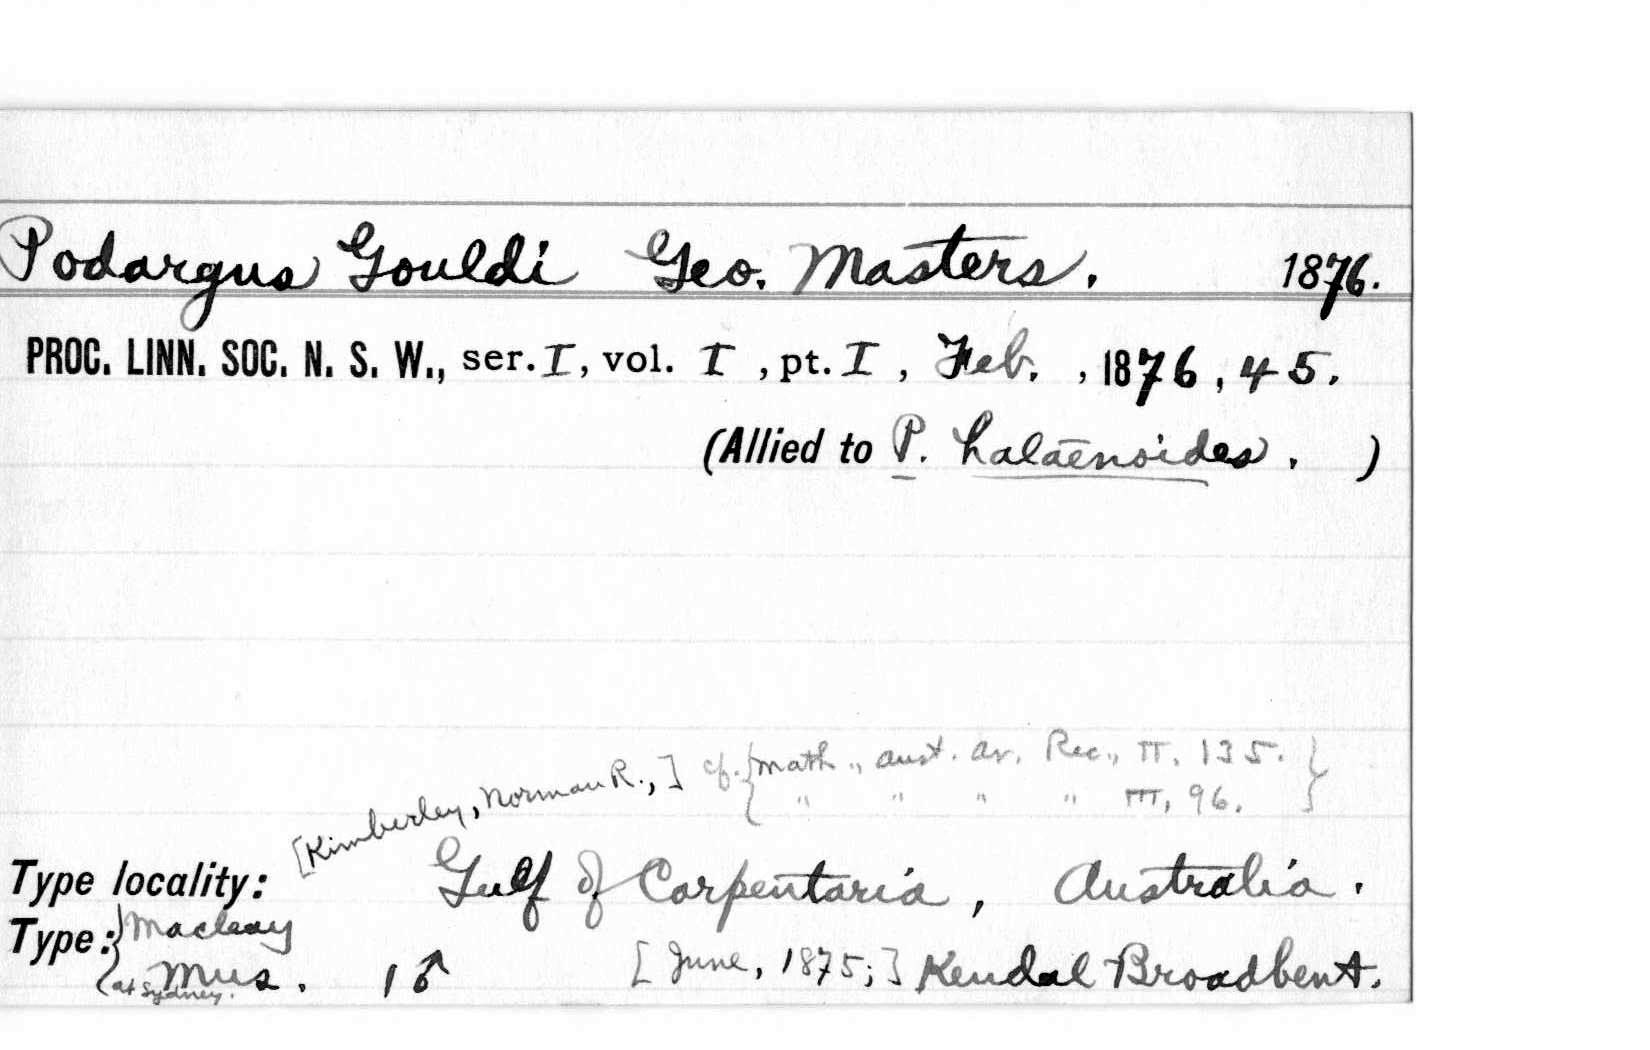 Podargus Gouldi Geo. Masters. 1876.
PROC. LINN. SOC. N. S. W., ser. I, vol. I, pt. I, Feb., 1876, 45.
(Allied to P. halaenoides. )
[Kimberley, Norman R.,] cf. {Math., Aust. Av. Rec., II, 135.}
{ " " " " III, 96. }
Type locality: Gulf of Carpentaria, Australia.
Type: {Macleay
Mus. 1 ♂ [June, 1875;] Kendal Broadbent.
at Sydney.